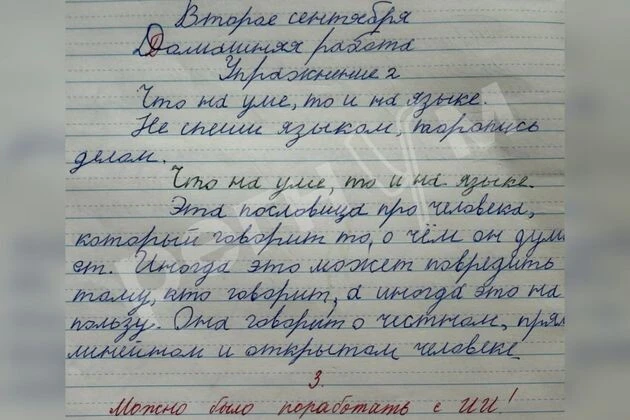 Второе сентября
Домашняя работа
Упражнение 2
Что на уме, то и на языке.
Не спеши языком, торопись
делом.
Что на уме, то и на языке.
Эта пословица про человека,
который говорит то, о чём он дум
ет. Иногда это может повредить
тому, кто говорит, а иногда это на
пользу. Она говорит о честном, прям
линейном и открытом человеке
3.
Можно было поработать с ИИ!